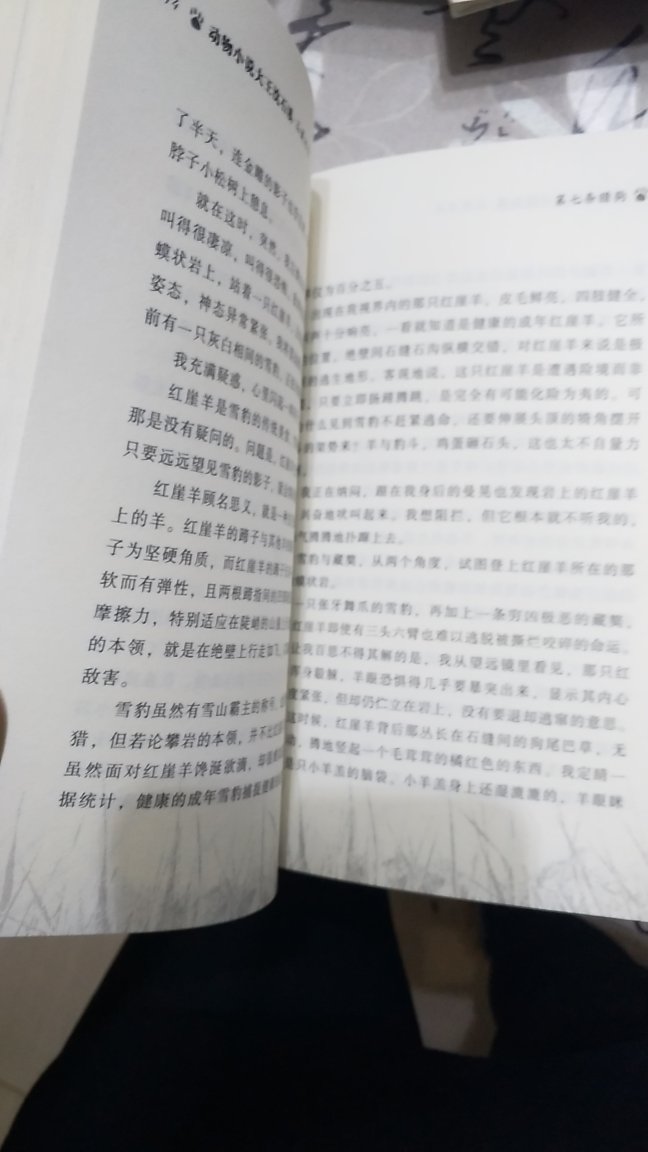 动物小说大王沈石溪
了半天，连金雕的影子
脖子小松树上憩息。
就在这时，突然，
叫得很凄凉，叫得很恐惧，
蟆状岩上，站着一只红崖羊，
姿态，神态异常紧张，
前有一只灰白相间的雪豹，
我充满疑惑，心里闪起
红崖羊是雪豹的传统
那是没有疑问的。问题是，
只要远远望见雪豹的影子，
红崖羊顾名思义，就是一种
上的羊。红崖羊的蹄子与其他
子为坚硬角质，而红崖羊的蹄子
软而有弹性，且两根蹄指间的
摩擦力，特别适应在陡峭的山崖
的本领，就是在绝壁上行走如飞，
敌害。
雪豹虽然有雪山霸主的称号，
猎，但若论攀岩的本领，并不比
虽然面对红崖羊馋涎欲滴，却很
据统计，健康的成年雪豹捕捉健康
第七条猎狗
仅为百分之五。
出现在我视界内的那只红崖羊，皮毛鲜亮，四肢健全，
声十分响亮，一看就知道是健康的成年红崖羊。它所
位置，绝壁间石缝石沟纵横交错，对红崖羊来说是极
的逃生地形。客观地说，这只红崖羊是遭遇险境而非
，只要立即扬蹄蹿跳，是完全有可能化险为夷的。可
什么见到雪豹不赶紧逃命，还要伸展头顶的犄角摆开
的架势来？羊与豹斗，鸡蛋砸石头，这也太不自量力
我正在纳闷，跟在我身后的曼晃也发现岩上的红崖羊
奋地吠叫起来。我想阻拦，但它根本就不听我的，
气腾腾地扑蹿上去。
雪豹与藏獒，从两个角度，试图登上红崖羊所在的那
蟆状岩。
一只张牙舞爪的雪豹，再加上一条穷凶极恶的藏獒，
红崖羊即使有三头六臂也难以逃脱被撕烂咬碎的命运。
让我百思不得其解的是，我从望远镜里看见，那只红
浑身觳觫，羊眼恐惧得几乎要暴突出来，显示其内心
度紧张，但却仍伫立在岩上，没有要退却逃窜的意思。
这时候，红崖羊背后那丛长在石缝间的狗尾巴草，无
动，腾地竖起一个毛茸茸的橘红色的东西。我定睛一
是只小羊羔的脑袋。小羊羔身上还湿漉漉的，羊眼眯